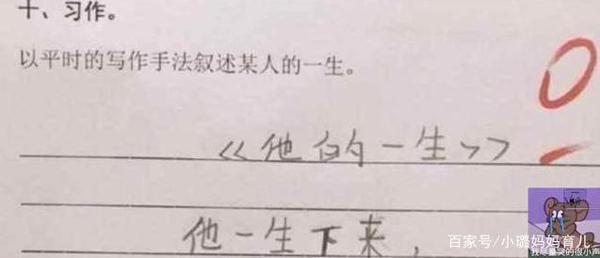 十、习作。
以平时的写作手法叙述某人的一生。
0
《他的一生》
他一生下来,
百家号/小璐妈妈育儿